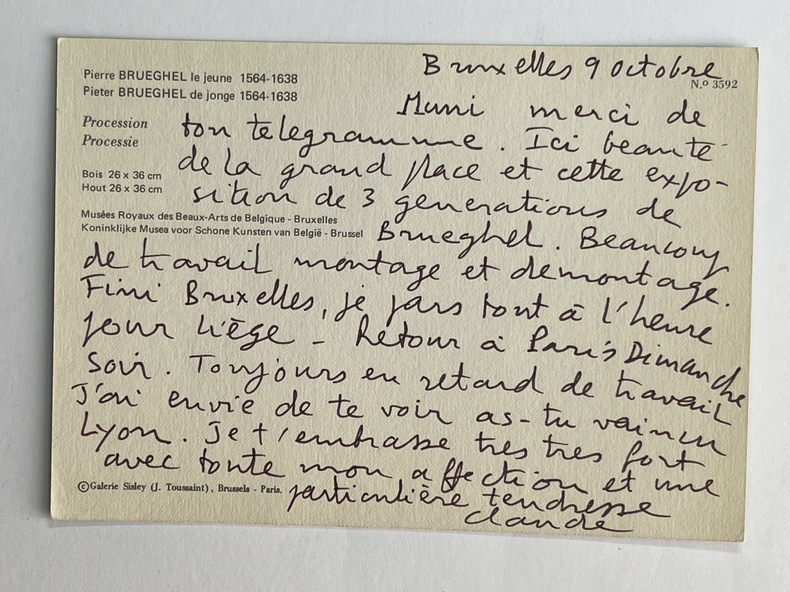 Bruxelles 9 octobre
Pierre BRUEGHEL le jeune 1564-1638
Pieter BRUEGHEL de jonge 1564-1638
N.º 3592
Muni merci de
Procession
Processie
ton telegramme. Ici beauté
de la grand place et cette expo-
Bois 26 x 36 cm
Hout 26 x 36 cm
sition de 3 generations de
Musées Royaux des Beaux-Arts de Belgique - Bruxelles
Koninklijke Musea voor Schone Kunsten van België - Brussel
Brueghel. Beaucoup
de travail montage et demontage.
Fini Bruxelles, je pars tout à l'heure
pour Liège - Retour à Paris Dimanche
Soir. Toujours en retard de travail
J'ai envie de te voir as-tu vaincu
Lyon. Je t'embrasse tres tres fort
avec toute mon affection et une
©Galerie Sisley (J. Toussaint), Brussels - Paris.
particulière tendresse
Claude